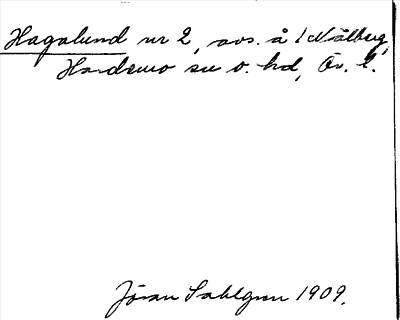 Hagalund nr 2, avs. å 1 Målberg,
Hardemo sn o. hd, Ör. l.
Jöran Sahlgren 1909.